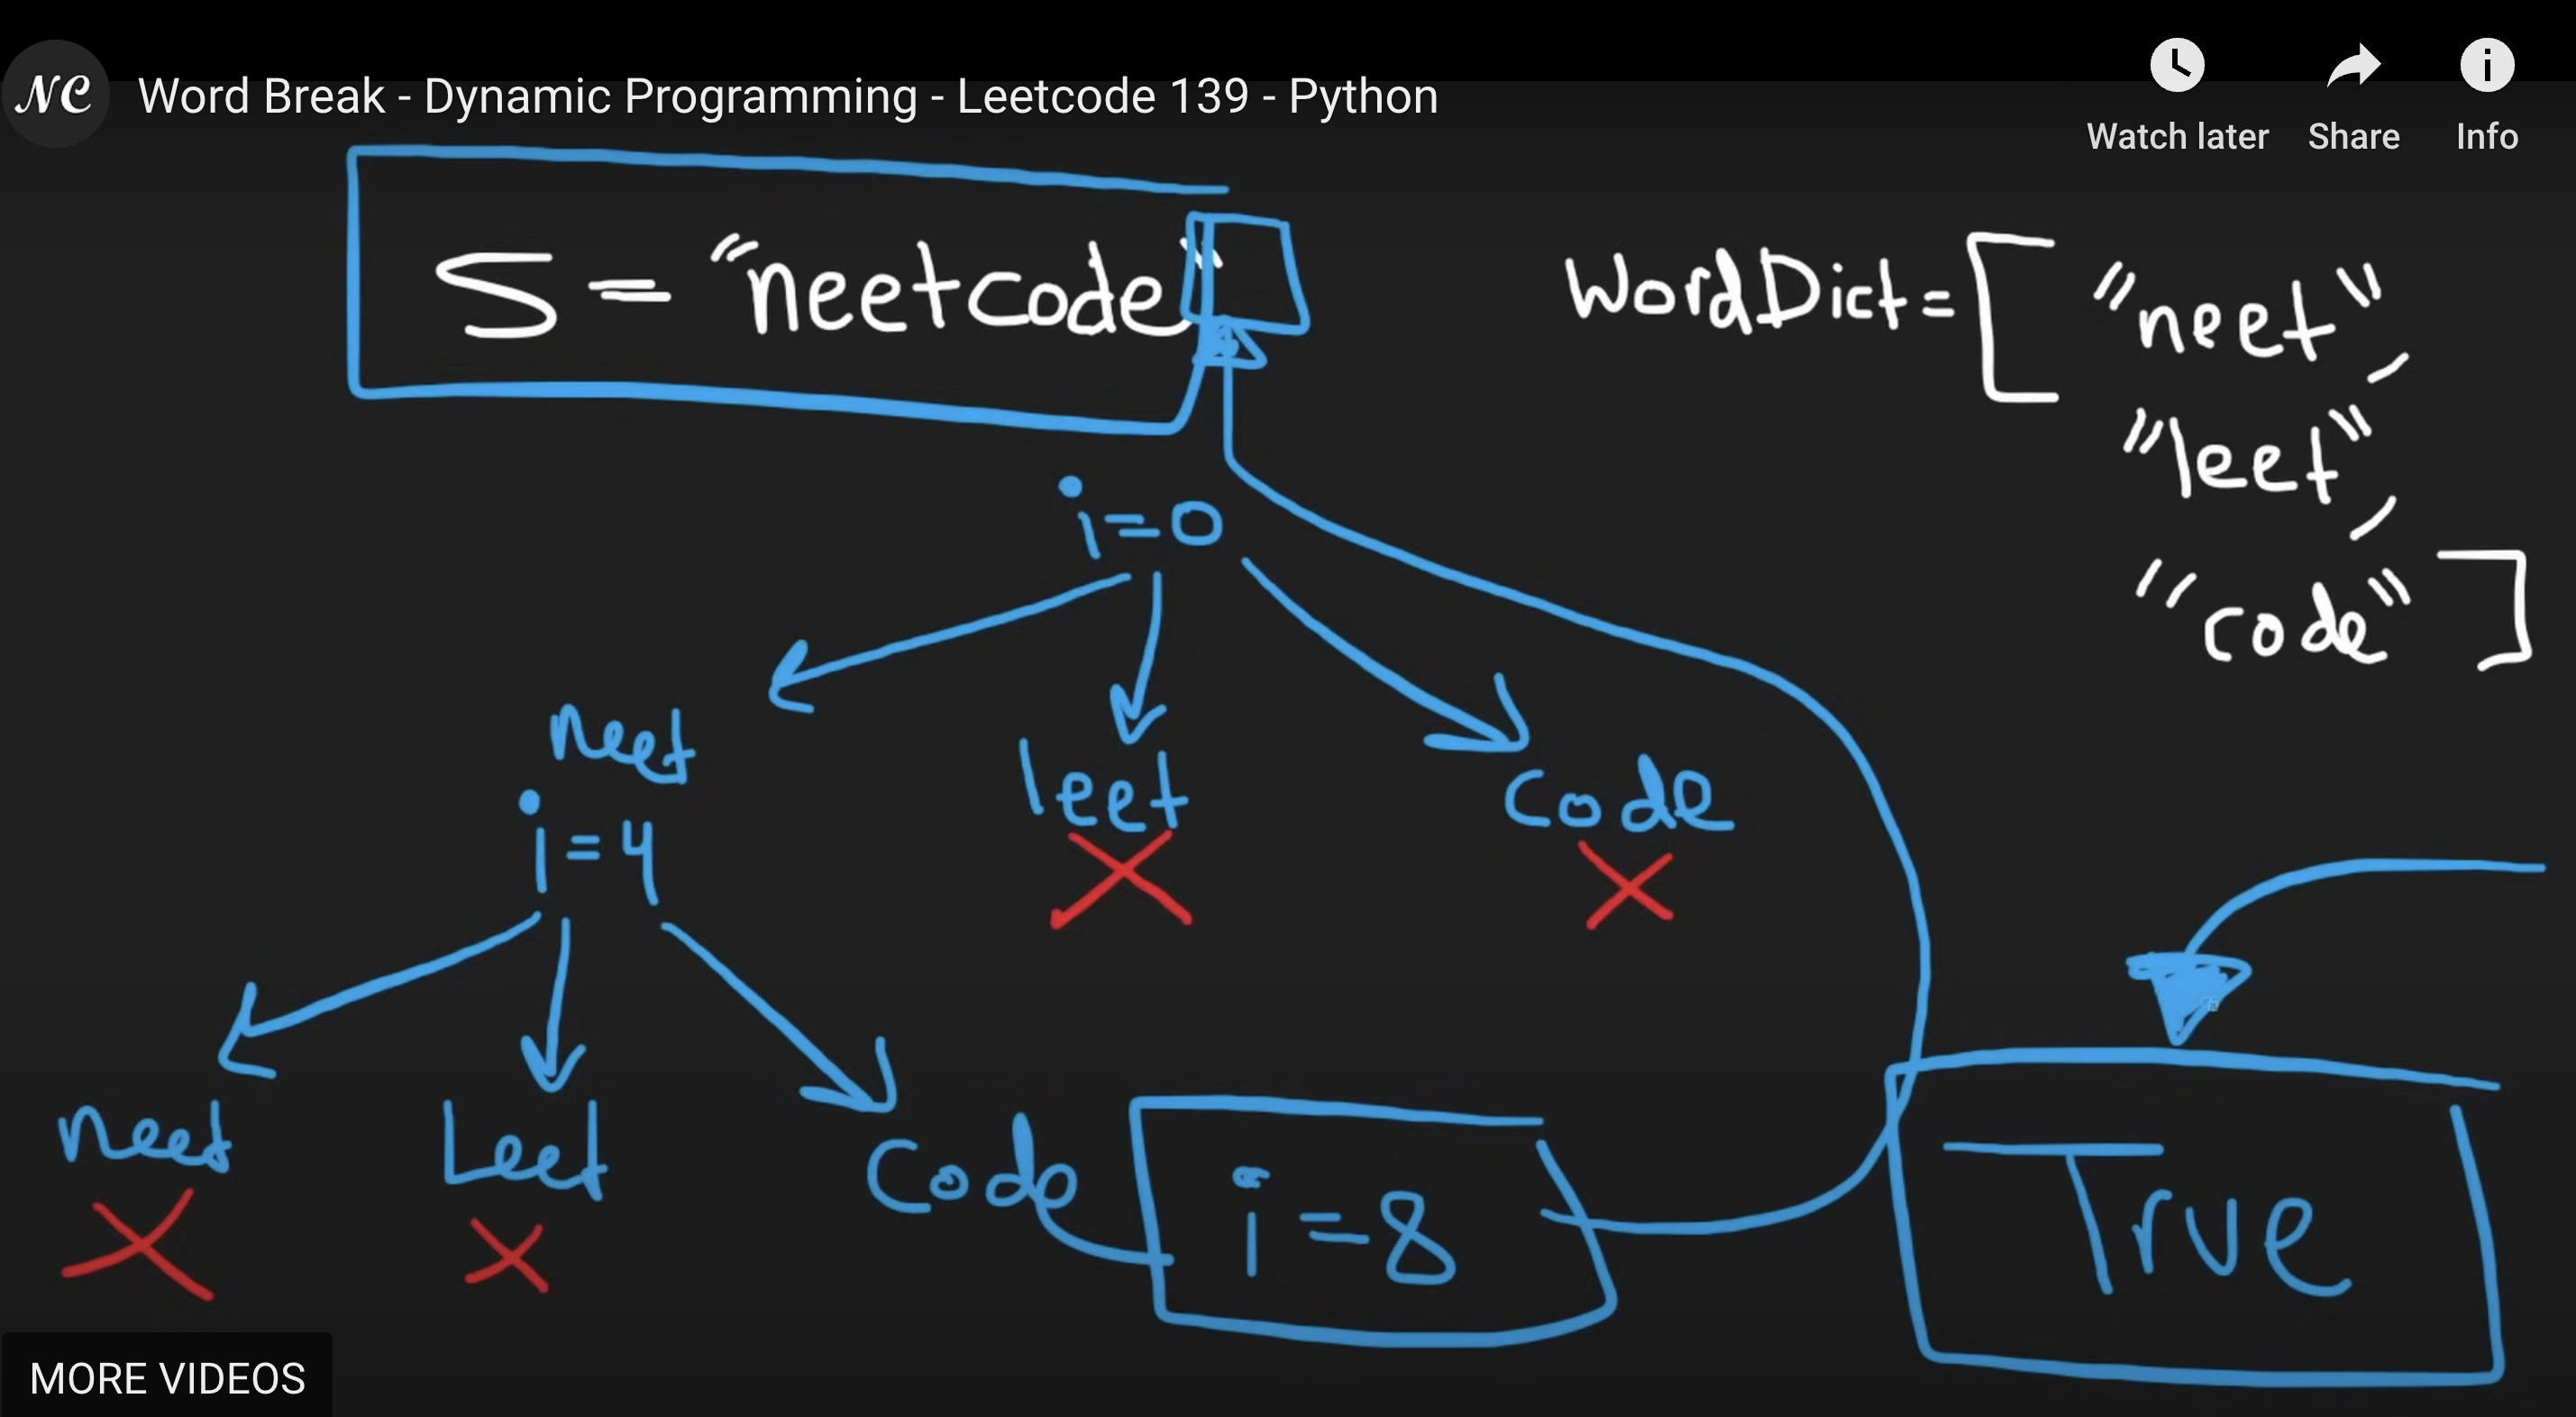 NC Word Break - Dynamic Programming - Leetcode 139 - Python
Watch later Share Info
S = "neetcode"
WordDict = [ "neet",
"leet",
"code" ]
i=0
neet
leet
code
i=4
neet
Leet
Code
i=8
True
MORE VIDEOS